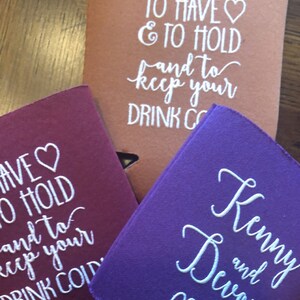 TO HAVE♡
& TO HOLD
and to
keep your
DRINK COL
HAVE♡
TO HOLD
and to
keep your
DRINK COLD
Kenny
and
Devo